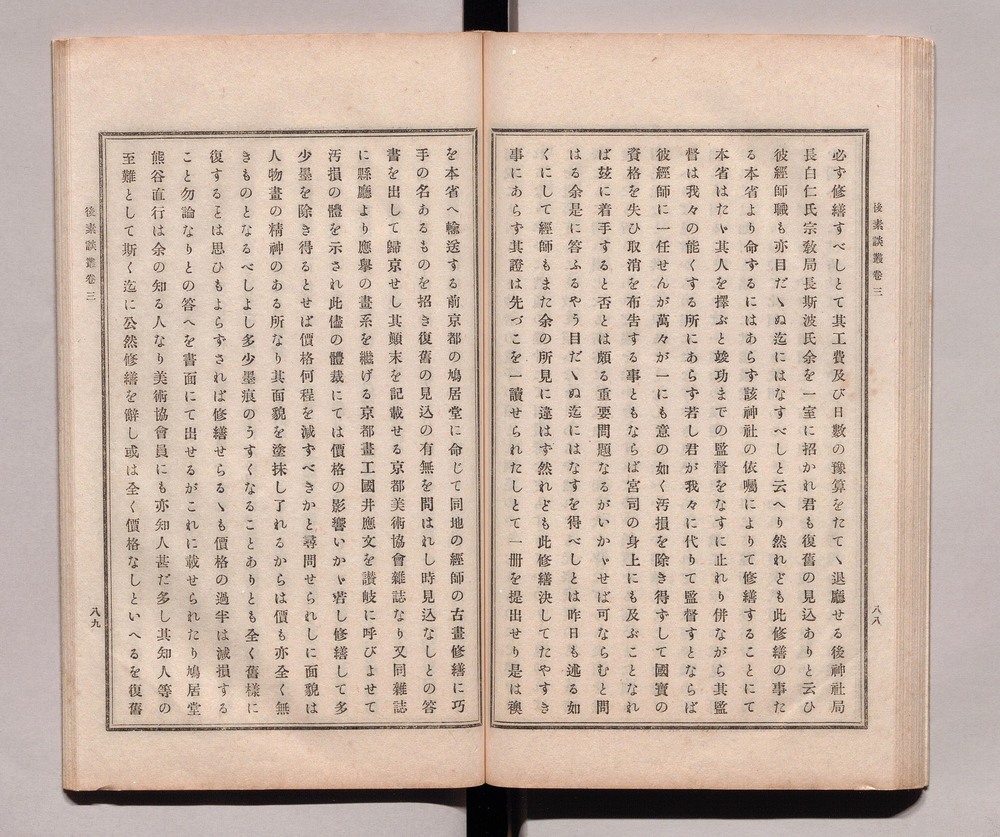 後素談叢卷三
八八
必す修繕すべしとて其工費及び日數の豫算をたてゝ退廳せる後神社局
長白仁氏宗敎局長斯波氏余を一室に招かれ君も復舊の見込ありと云ひ
彼經師職も亦目だゝぬ迄にはなすべしと云へり然れども此修繕の事た
る本省より命ずるにはあらす該神社の依囑によりて修繕することにて
本省はたゞ其人を擇ぶと竣功までの監督をなすに止れり併ながら其監
督は我々の能くする所にあらす若し君が我々に代りて監督すとならば
彼經師に一任せんが萬々が一にも意の如く汚損を除き得ずして國寶の
資格を失ひ取消を布告する事ともならば宮司の身上にも及ぶことなれ
ば玆に着手すると否とは頗る重要問題なるがいかゞせば可ならむと問
はる余是に答ふるやう目だゝぬ迄にはなすを得べしとは昨日も述る如
くにして經師もまた余の所見に違はす然れども此修繕決してたやすき
事にあらす其證は先づこを一讀せられたしとて一册を提出せり是は襖
を本省へ輸送する前京都の鳩居堂に命じて同地の經師の古畫修繕に巧
手の名あるものを招き復舊の見込の有無を問はれし時見込なしとの答
書を出して歸京せし其顚末を記載せる京都美術協會雜誌なり又同雜誌
に縣廳より應擧の畫系を繼げる京都畫工國井應文を讃岐に呼びよせて
汚損の體を示され此儘の體裁にては價格の影響いかゞ若し修繕して多
少墨を除き得るとせば價格何程を減すべきかと尋問せられしに面貌は
人物畫の精神のある所なり其面貌を塗抹し了れるからは價も亦全く無
きものとなるべしよし多少墨痕のうすくなることありとも全く舊樣に
復するとは思ひもよらずされば修繕せらるゝも價格の過半は減損する
こと勿論なりとの答へを書面にて出せるがこれに載せられたり鳩居堂
熊谷直行は余の知る人なり美術協會員にも亦知人甚だ多し其知人等の
至難として斯く迄に公然修繕を辭し或は全く價格なしといへるを復舊
後素談叢卷三
八九